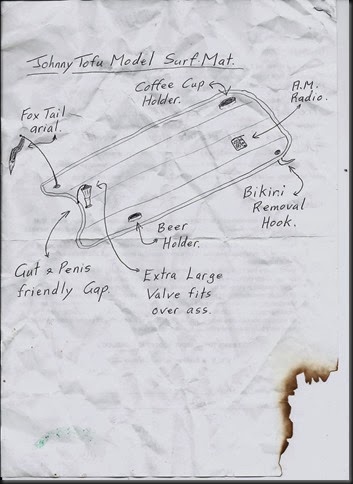 Johnny Tofu Model Surf.Mat.
Coffee Cup
Holder.
A.M.
Radio.
Fox Tail
arial.
Bikini
Removal
Hook.
Beer
Holder.
Gut & Penis
friendly Gap.
Extra Large
Valve fits
over ass.